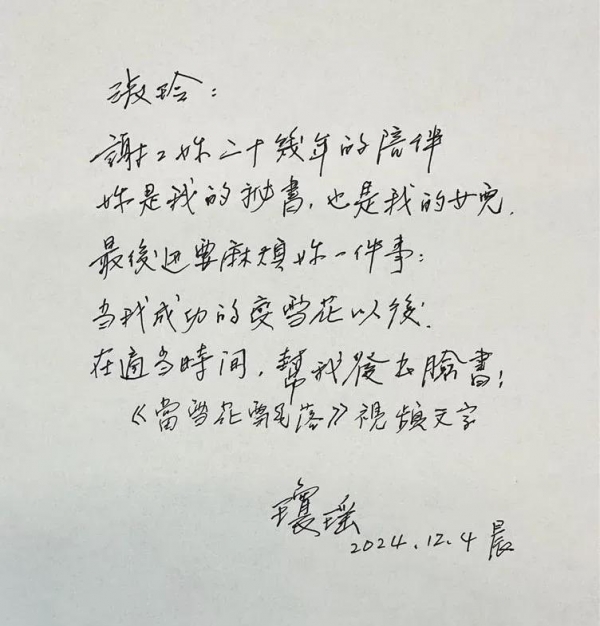 淑玲：
謝謝妳二十幾年的陪伴
妳是我的秘書，也是我的女兒．
最後还要麻煩妳一件事：
当我成功的变雪花以後．
在適当時间，幫我發出臉書：
《當雪花飄落》視頻文字
瓊瑤
2024.12.4 晨